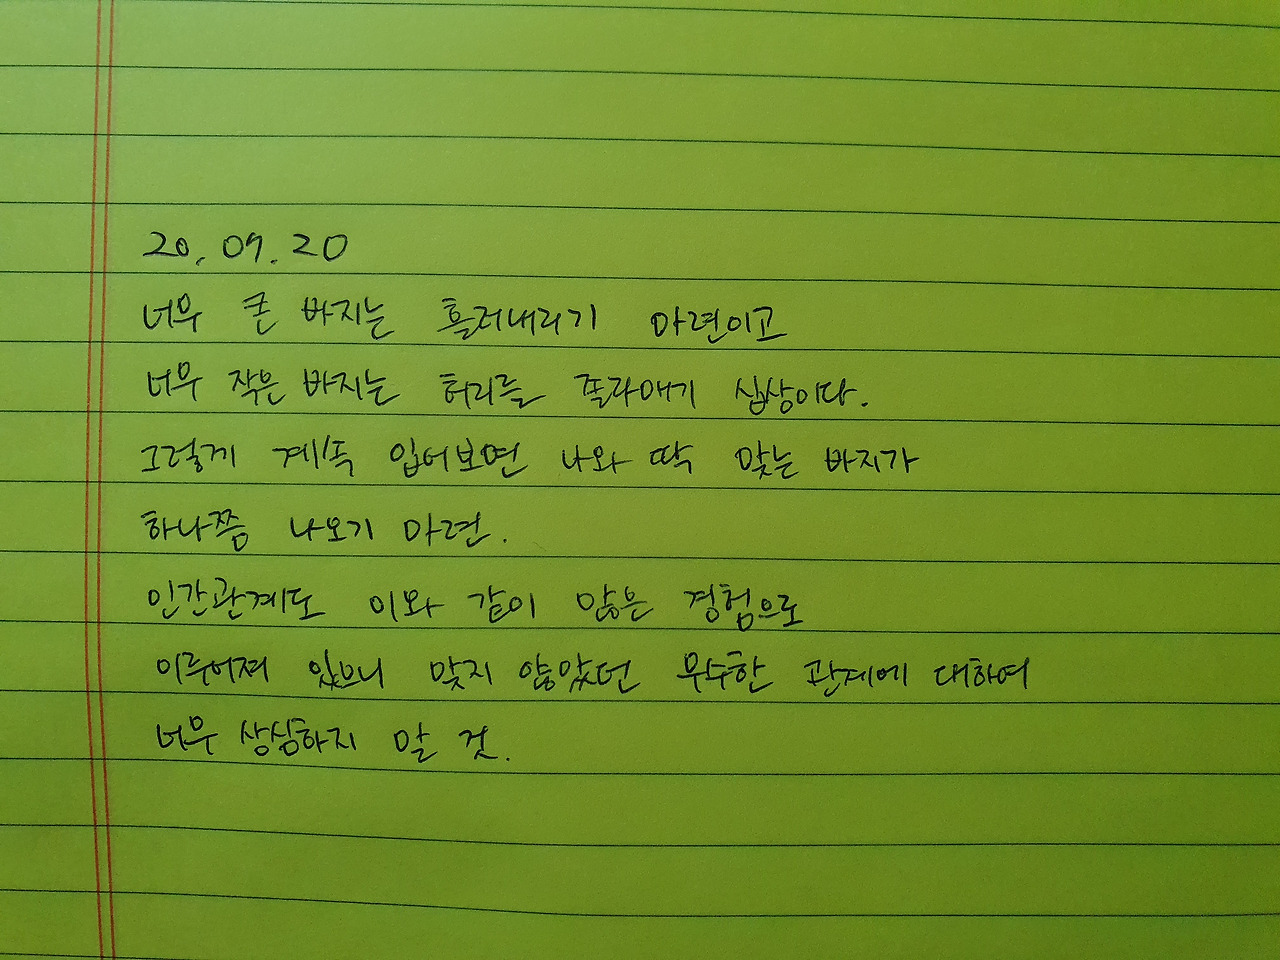 20. 09. 20
너무 큰 바지는 흘러내리기 마련이고
너무 작은 바지는 허리를 졸라매기 십상이다.
그렇게 계속 입어보면 나와 딱 맞는 바지가
하나쯤 나오기 마련.
인간관계도 이와 같이 많은 경험으로
이루어져 있으니 맞지 않았던 무수한 관계에 대하여
너무 상심하지 말 것.